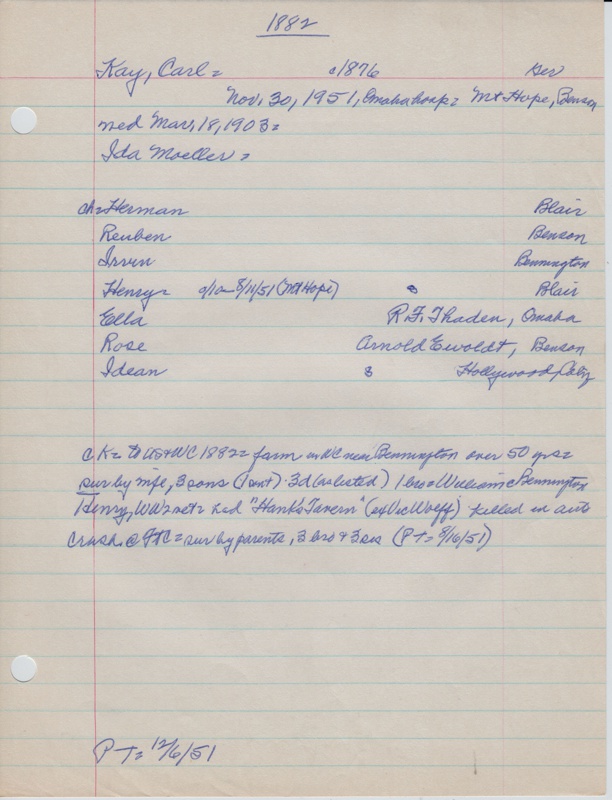 1882
Kay, Carl= c1876 Ger
Nov. 30, 1951, Omaha hosp= Mt Hope, Benson
med Mar, 18, 1903=
Ida Moeller=
ch= Herman Blair
Reuben Benson
Irvin Bennington
Henry= 8/11/51 (Mt Hope) Blair
Ella R.F. Thaden, Omaha
Rose Arnold Ewoldt, Benson
Idean Hollywood,
CK= to US & WC 1882= farm in WC near Bennington over 50 yrs=
sur by wife, 3 sons 3d (as listed) 1 bro= William Bennington
Henry, WW2 vet= had "Hank's Tavern" (ex Vic Wolff) killed in auto
crash @ Ft C= sur by parents, 3 bro & 3 sis (PT= 8/16/51)
PT= 12/6/51